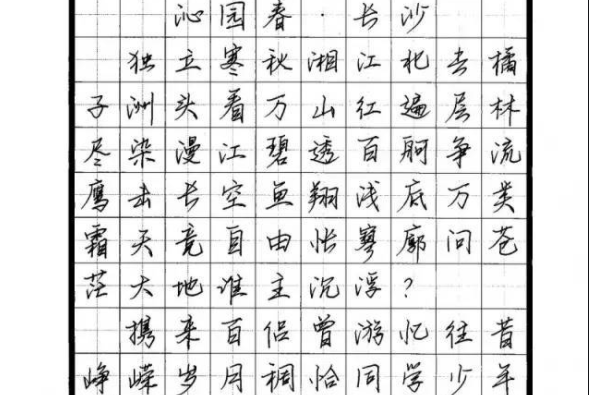 沁园春·长沙
独立寒秋湘江北去橘
子洲头看万山红遍层林
尽染漫江碧透百舸争流
鹰击长空鱼翔浅底万类
霜天竟自由怅寥廓问苍
茫大地谁主沉浮?
携来百侣曾游忆往昔
峥嵘岁月稠恰同学少年